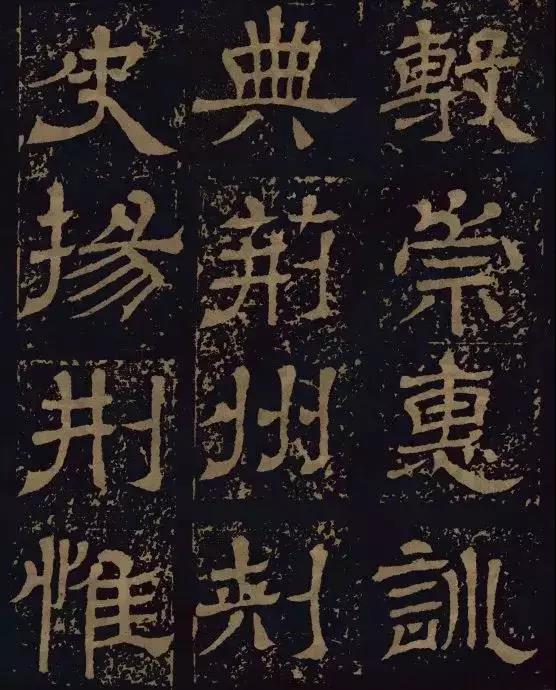 敦崇惠訓
典荊州刺
史揚刑惟